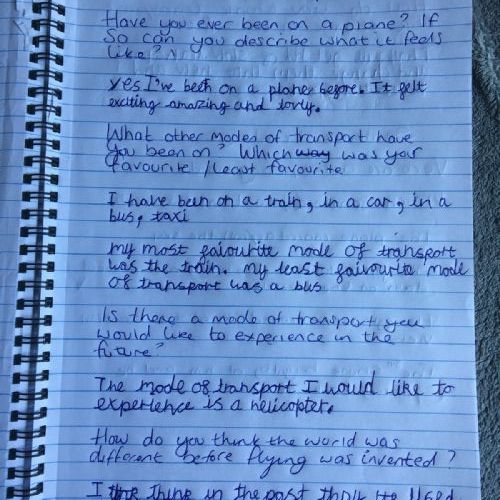 Have you ever been on a plane? If
so can you describe what it feels
like?
Yes I've been on a plane before. It felt
exciting amazing and lovly.
What other modes of transport have
you been on? Which way was your
favourite / least favourite
I have been on a train, in a car, in a
bus, taxi
my most faiourite mode of transport
was the train. my least faivourite mode
of transport was a bus
Is there a mode of transport you
would like to experience in the
future?
The mode of transport I would like to
experience is a helicopter.
How do you think the world was
different before flying was invented?
I think in the past they used